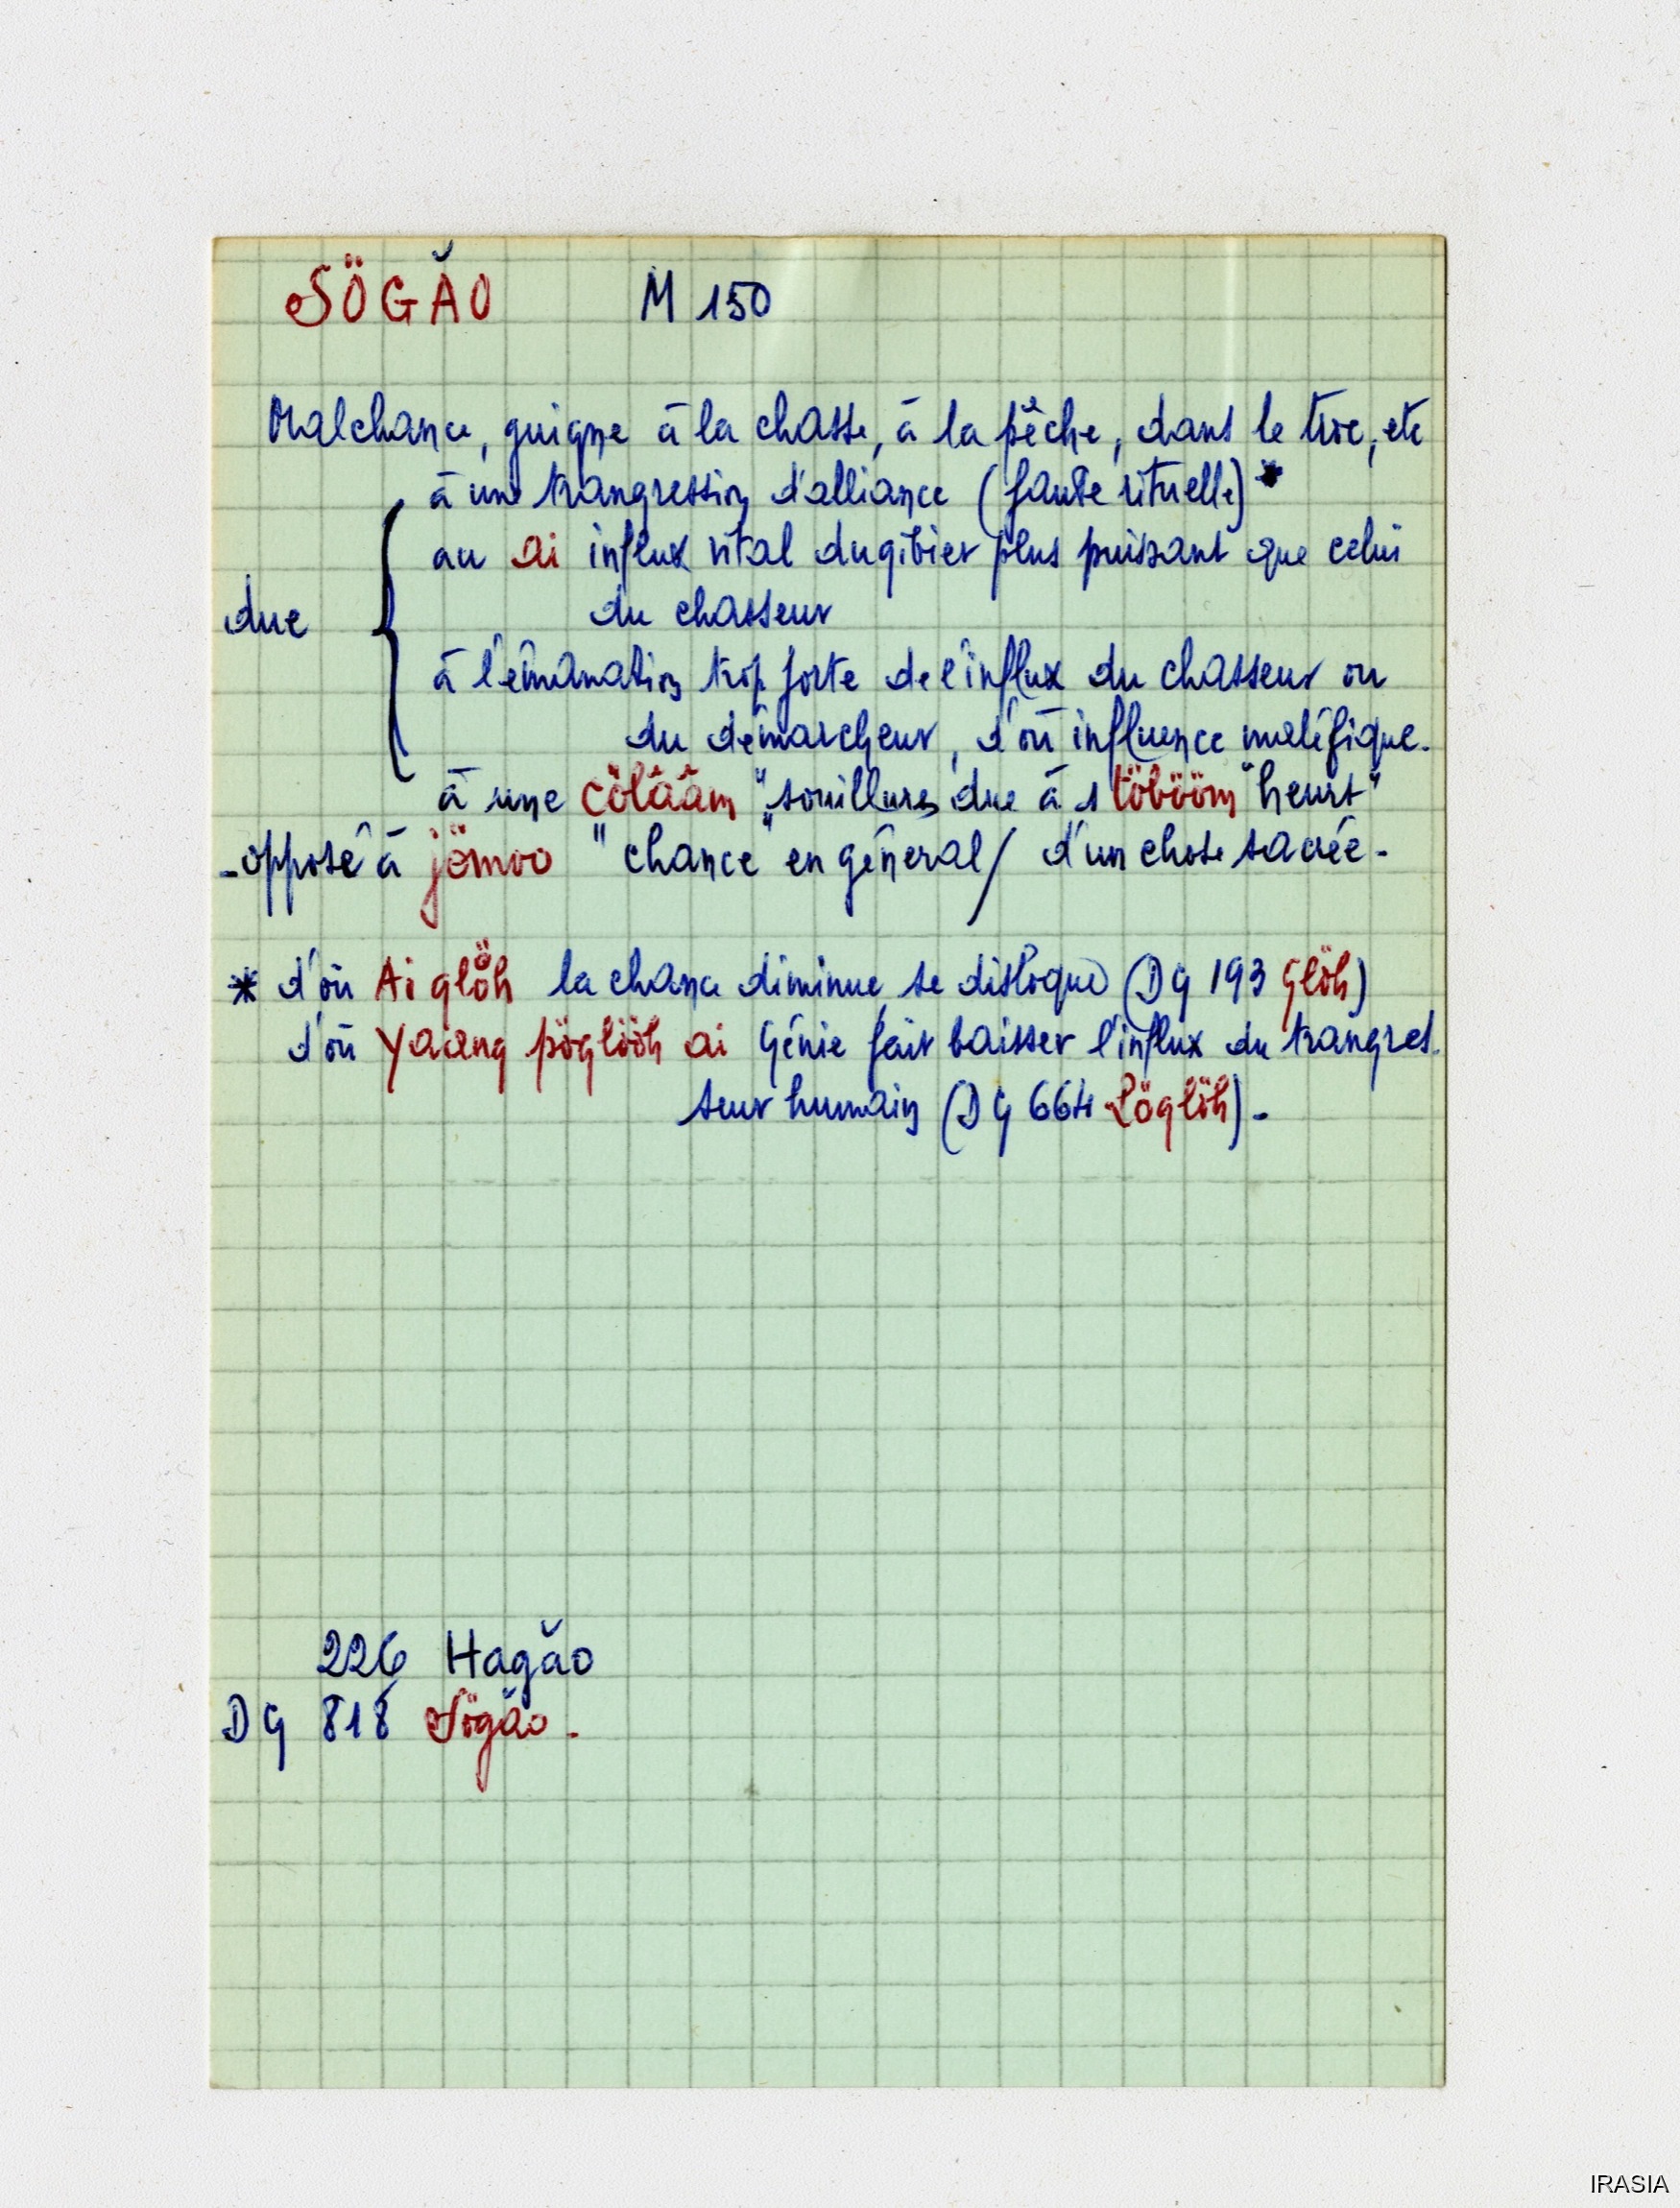 SÖGĂO M 150
Malchance, guigne à la chasse, à la pêche, dans le troc, etc
à une trangression d'alliance (faute rituelle) *
au ai influx vital du gibier plus puissant que celui
du chasseur
due
à l'émanation trop forte de l'influx du chasseur ou
du démarcheur, d'où influence maléfique.
à une cölââm "souillure" due à 1 töbööm "heurt"
- opposé à jömoo "chance" en général / d'un chose sacrée -
* d'où Ai glöh la chance diminue, se disloque (DG 193 Glöh)
d'où Yaang pöglööh ai Génie fait baisser l'influx du trangres
seur humain (DG 664 Löglöh) -
226 Hagăo
DG 818 Sögăo -
IRASIA